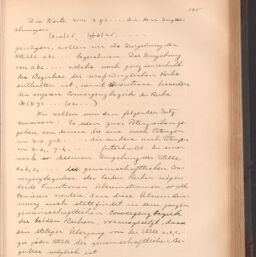 Die Werte von x y z ..., die den Unglei-
chungen
|x-a|<δ, |y-b|<δ, ...
genügen, wollen wir die Umgebung der
Stelle abc... bezeichnen. Die Umgebung
von abc... welche noch ganz innerhalb
des Bezirkes der ursprünglichen Reihe
enthalten ist, nennt
den engeren Convergenzbezirk der Reihe
P(x y z ... | abc...).
Wir wollen nun den folgenden Satz
beweisen: Es seien zwei Potenzreihen ge-
geben, von denen die eine nach Potenzen
von x-a, y-b, ... die andere nach Potenzen
von x-a, y-b, ... fortschreitet. In einer
noch so kleinen Umgebung der Stelle
a, b, c, ... des gemeinschaftlichen Con-
vergenzbezirkes der beiden Reihen mögen
beide Functionen übereinstimmen, so
dass diese Übereinstim-
mung auch stattfindet in dem ganzen
gemeinschaftlichen Convergenzbezirk
der beiden Reihen, vorausgesetzt, dass
ein stetiger Übergang von der Stelle a, b, c,
zu jeder Stelle des gemeinschaftlichen Be-
zirkes möglich ist